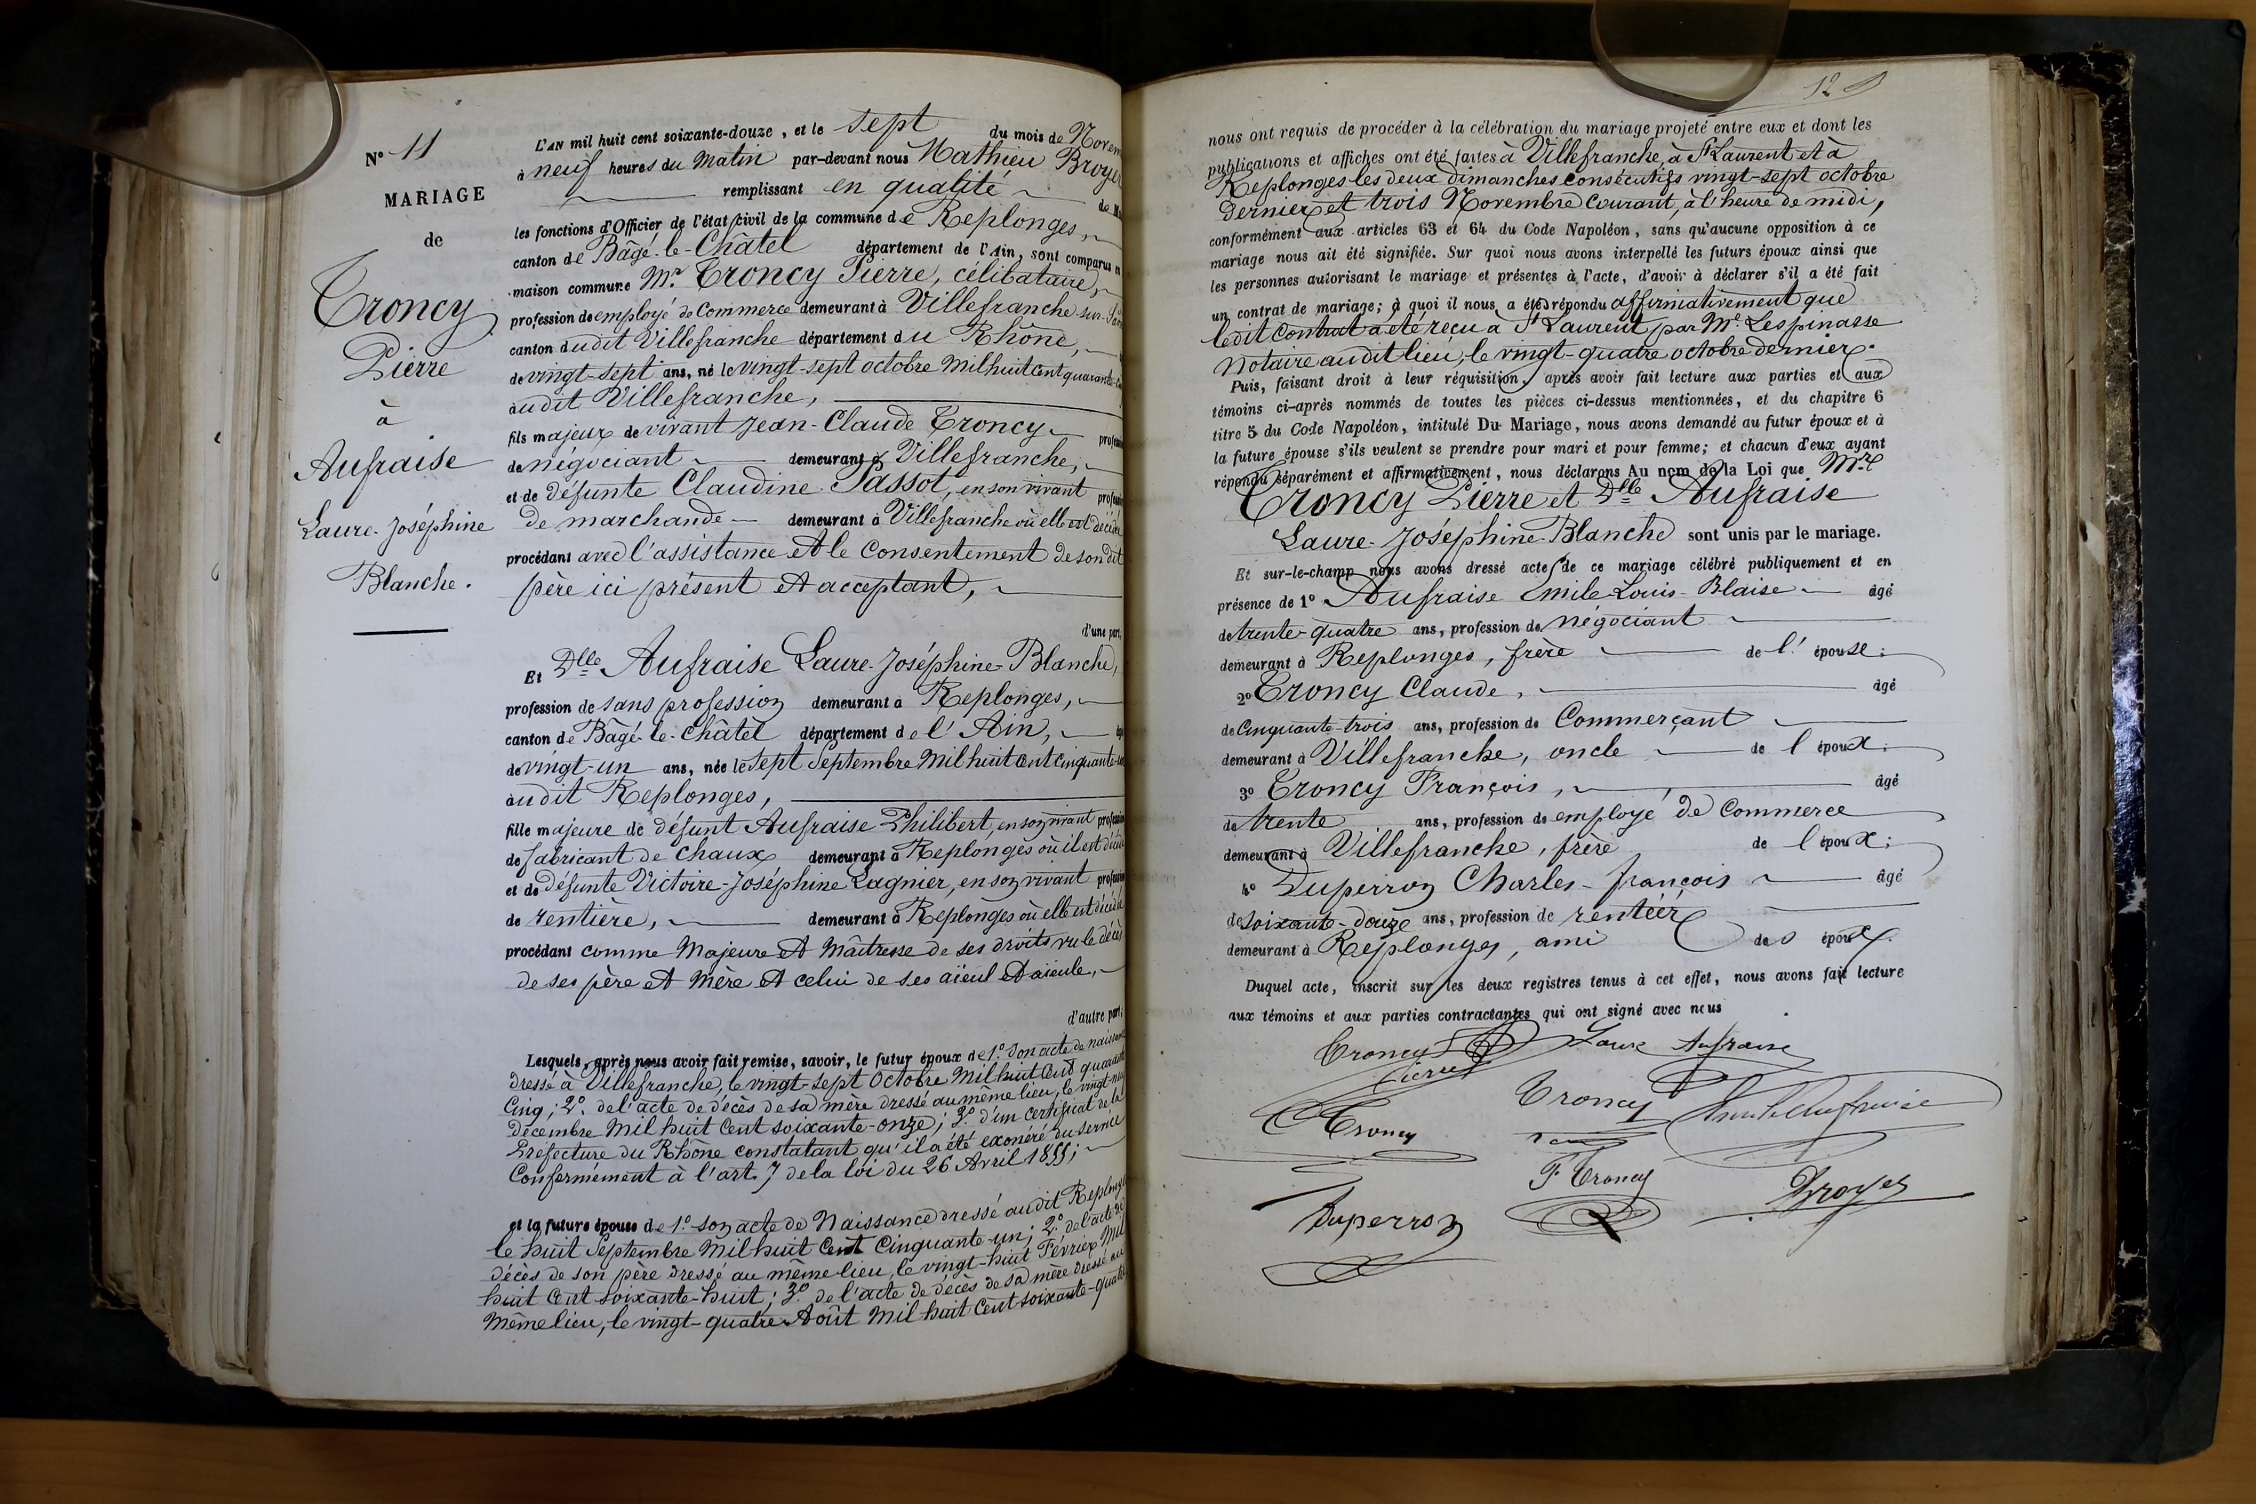 N° 11
MARIAGE
de
Troncy
Pierre
à
Aufraise
Laure-Joséphine
Blanche.
L'AN mil huit cent soixante-douze, et le sept du mois de Novem
à neuf heures du Matin par-devant nous Mathieu Broyer
remplissant en qualité de M
les fonctions d'Officier de l'état civil de la commune de Replonges,
canton de Bâgé-le-Châtel département de l'Ain, sont comparus en
maison commune Mr. Troncy Pierre, célibataire,
profession de employé de Commerce demeurant à Villefranche-sur-Saô
canton dudit Villefranche département du Rhône,
de vingt-sept ans, né le vingt-sept octobre Mil huit cent quarante-
audit Villefranche,
fils majeur de vivant Jean-Claude Troncy profession
de négociant demeurant à Villefranche,
et de défunte Claudine Passot, en son vivant profession
de marchande demeurant à Villefranche où elle est décédée
procédant avec l'assistance et le consentement de son dit
père ici présent et acceptant,
d'une part,
Et Dlle Aufraise Laure-Joséphine-Blanche,
profession de sans profession demeurant à Replonges,
canton de Bâgé-le-Châtel département de l'Ain,
de vingt-un ans, née le sept Septembre Mil huit cent cinquante-un
audit Replonges,
fille majeure de défunt Aufraise Philibert, en son vivant profession
de fabricant de chaux demeurant à Replonges où il est décédé
et de défunte Victoire-Joséphine Lagnier, en son vivant profession
de rentière, demeurant à Replonges où elle est décédée
procédant comme Majeure et Maîtresse de ses droits vu le décès
de ses père et mère et celui de ses aïeul et aïeule,
d'autre part;
Lesquels, après nous avoir fait remise, savoir, le futur époux de 1° son acte de naissance
dressé à Villefranche, le vingt-sept Octobre Mil huit Cent quarante
Cinq; 2° de l'acte de décès de sa mère dressé au même lieu, le vingt-neuf
Décembre Mil huit Cent soixante-onze; 3° d'un certificat de la
Préfecture du Rhône constatant qu'il a été exonéré du service
Conformément à l'art. 7 de la loi du 26 Avril 1855;
et la future épouse de 1° son acte de Naissance dressé audit Replonges
le huit Septembre Mil huit Cent Cinquante-un; 2° de l'acte de
décès de son père dressé au même lieu, le vingt-huit Février Mil
huit Cent soixante-huit; 3° de l'acte de décès de sa mère dressé au
Même lieu, le vingt-quatre Août Mil huit Cent soixante-quatre
12
nous ont requis de procéder à la célébration du mariage projeté entre eux et dont les
publications et affiches ont été faites à Villefranche, à St Laurent et à
Replonges les deux dimanches consécutifs vingt-sept octobre
dernier et trois Novembre Courant, à l'heure de midi,
conformément aux articles 63 et 64 du Code Napoléon, sans qu'aucune opposition à ce
mariage nous ait été signifiée. Sur quoi nous avons interpellé les futurs époux ainsi que
les personnes autorisant le mariage et présentes à l'acte, d'avoir à déclarer s'il a été fait
un contrat de mariage; à quoi il nous a été répondu affirmativement que
ledit Contrat a été reçu à St Laurent par Me. Lespinasse
Notaire audit lieu, le vingt-quatre octobre dernier.
Puis, faisant droit à leur réquisition, après avoir fait lecture aux parties et aux
témoins ci-après nommés de toutes les pièces ci-dessus mentionnées, et du chapitre 6
titre 5 du Code Napoléon, intitulé Du Mariage, nous avons demandé au futur époux et à
la future épouse s'ils veulent se prendre pour mari et pour femme; et chacun d'eux ayant
répondu séparément et affirmativement, nous déclarons Au nom de la Loi que Mr
Troncy Pierre et Dlle Aufraise
Laure-Joséphine-Blanche sont unis par le mariage.
Et sur-le-champ nous avons dressé acte de ce mariage célébré publiquement et en
présence de 1° Aufraise Emile-Louis-Blaise âgé
de trente-quatre ans, profession de négociant
demeurant à Replonges, frère de l' épouse;
2° Troncy Claude, âgé
de Cinquante-trois ans, profession de Commerçant
demeurant à Villefranche, oncle de l' époux;
3° Troncy François, âgé
de trente ans, profession de employé de Commerce
demeurant à Villefranche, frère de l' époux;
4° Duperron Charles-François âgé
de soixante-douze ans, profession de rentier
demeurant à Replonges, ami des époux.
Duquel acte, inscrit sur les deux registres tenus à cet effet, nous avons fait lecture
aux témoins et aux parties contractantes qui ont signé avec nous
Troncy Laure Aufraise
Pierre
Troncy Emile Aufraise
C Troncy
F Troncy Broyer
Duperron